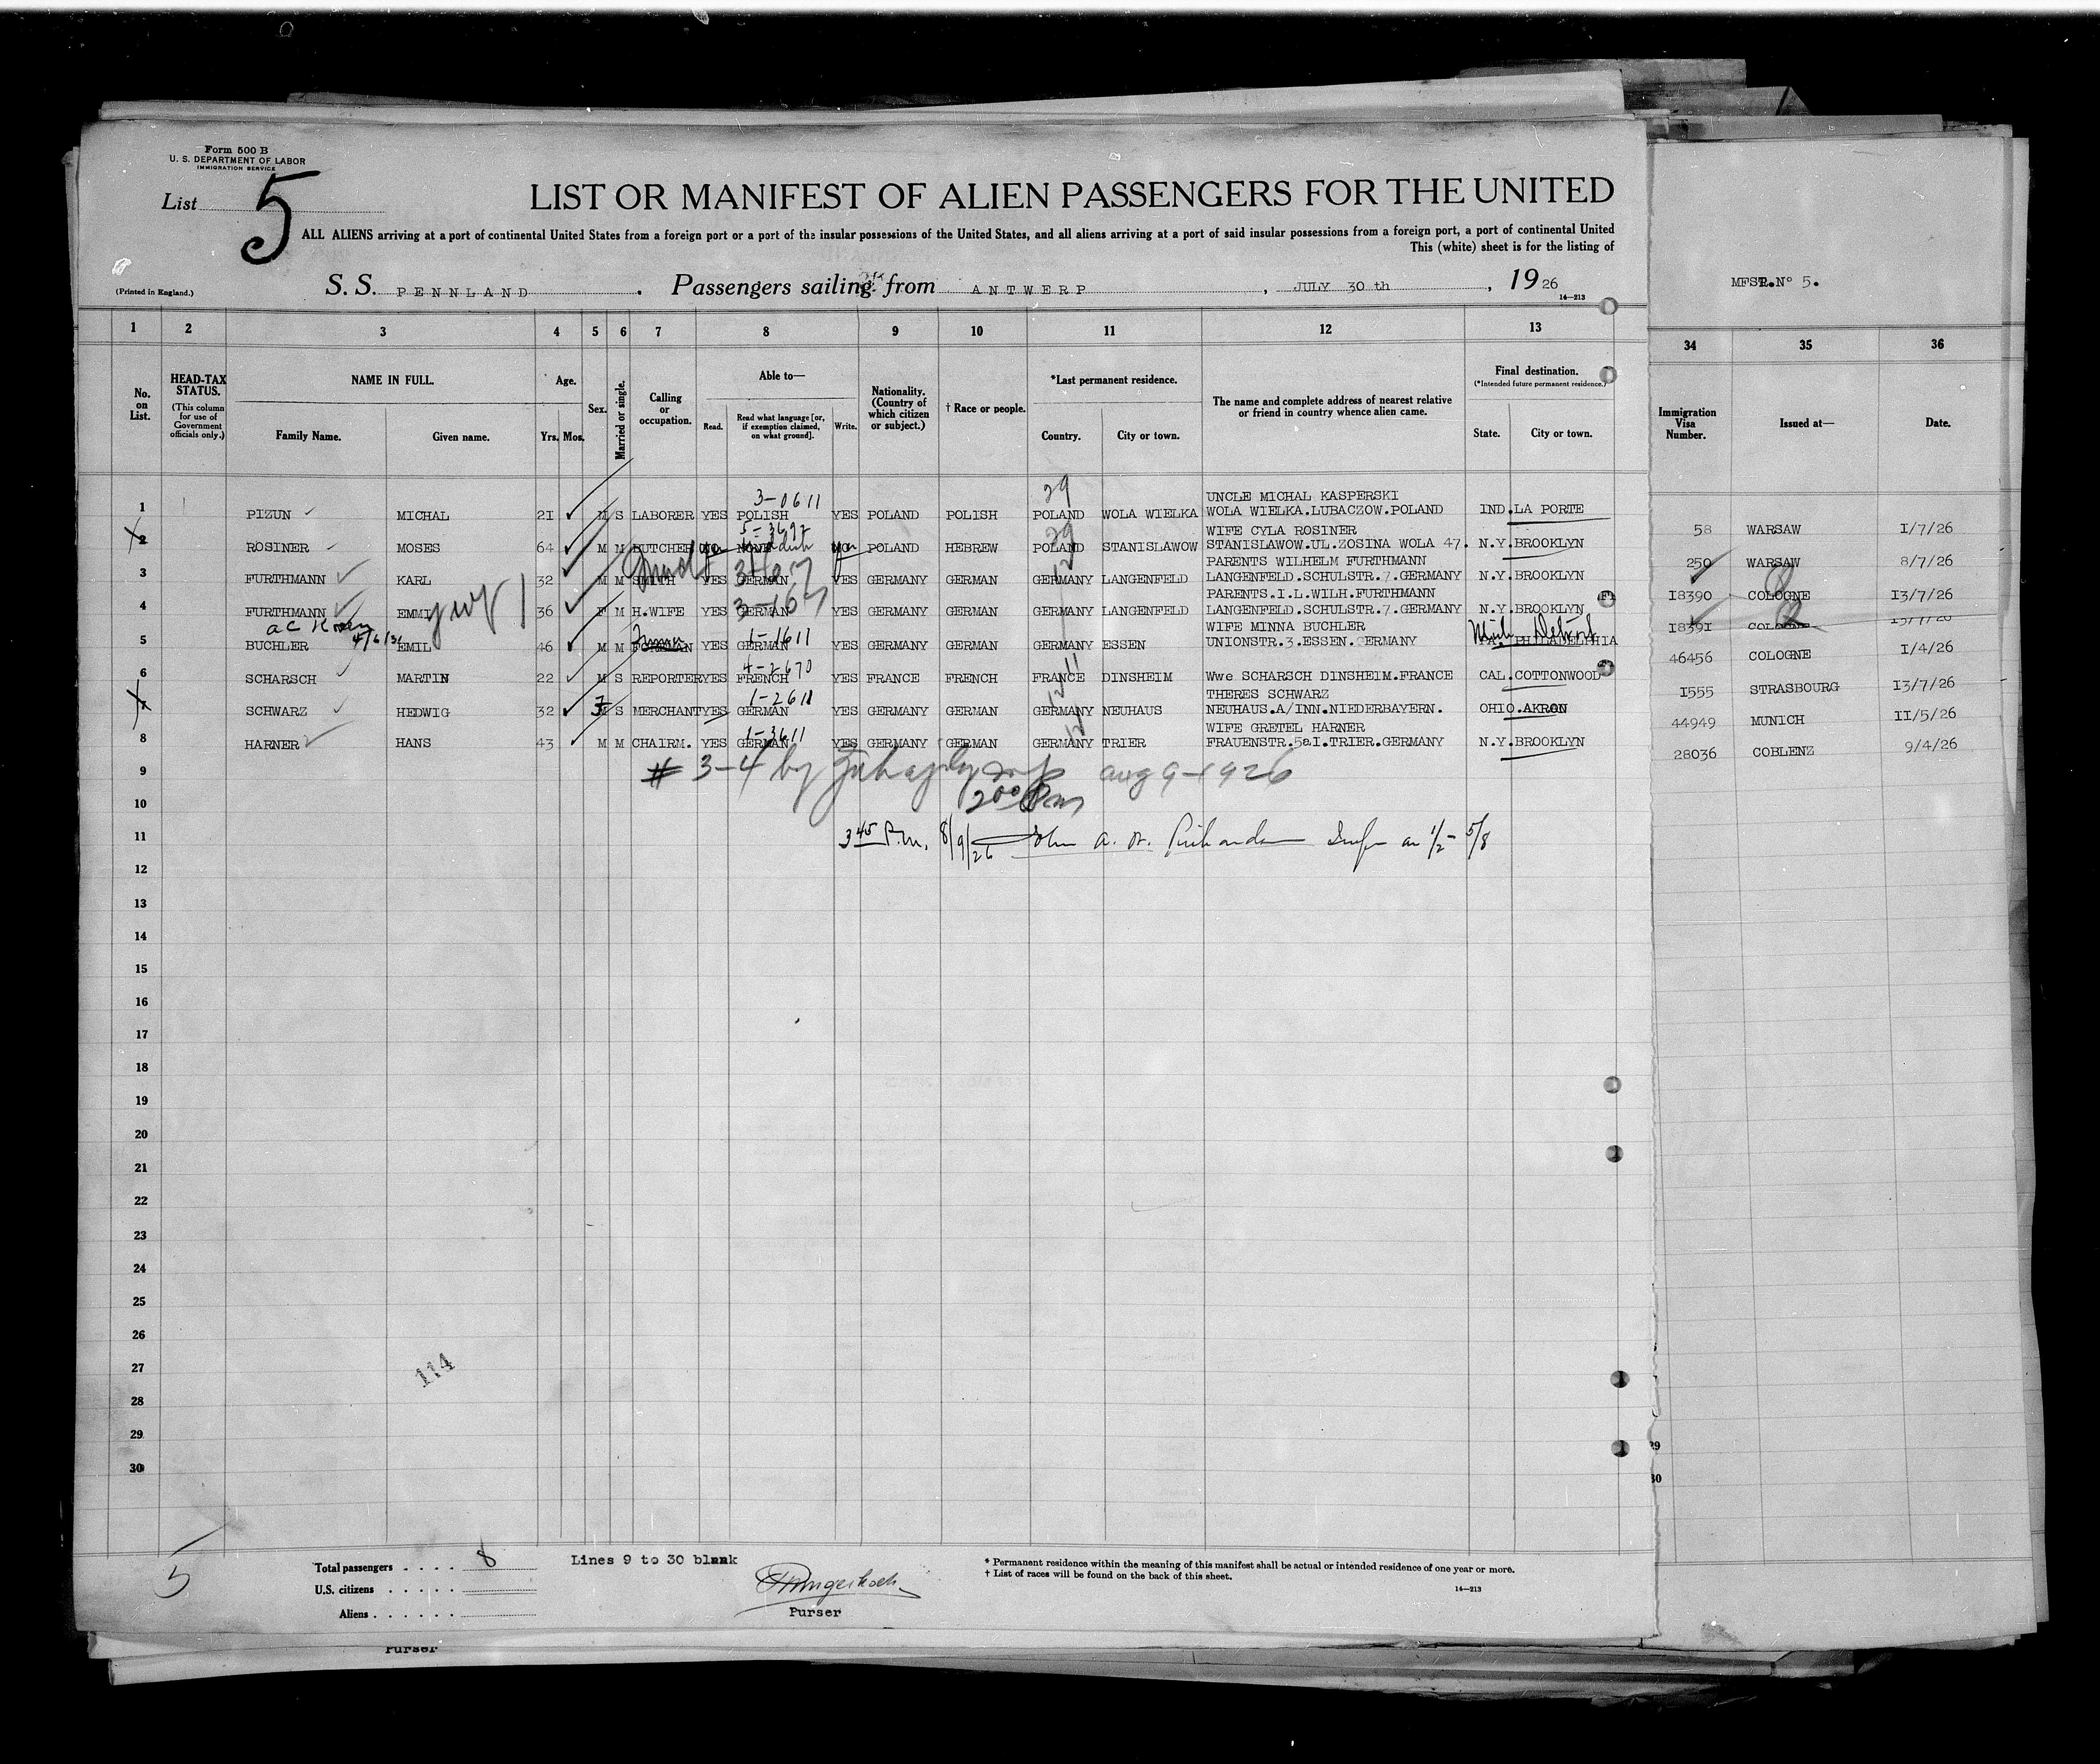 Form 500 B
U. S. DEPARTMENT OF LABOR
IMMIGRATION SERVICE
List 5
LIST OR MANIFEST OF ALIEN PASSENGERS FOR THE UNITED
ALL ALIENS arriving at a port of continental United States from a foreign port or a port of the insular possessions of the United States, and all aliens arriving at a port of said insular possessions from a foreign port, a port of continental United
This (white) sheet is for the listing of
(Printed in England.)
S. S. PENNLAND . Passengers sailing from ANTWERP , JULY 30 th , 1926
14—213
MFST.Nº 5.
1 2 3 4 5 6 7 8 9 10 11 12 13 34 35 36
No. on List.
HEAD-TAX STATUS.
(This column for use of Government officials only.)
NAME IN FULL.
Family Name. Given name.
Age.
Yrs. Mos.
Sex.
Married or single.
Calling or occupation.
Able to—
Read. Read what language [or, if exemption claimed, on what ground]. Write.
Nationality. (Country of which citizen or subject.)
† Race or people.
*Last permanent residence.
Country. City or town.
The name and complete address of nearest relative or friend in country whence alien came.
Final destination.
(*Intended future permanent residence.)
State. City or town.
Immigration Visa Number.
Issued at—
Date.
3-0611 29 UNCLE MICHAL KASPERSKI
1 PIZUN MICHAL 21 M S LABORER YES POLISH YES POLAND POLISH POLAND WOLA WIELKA WOLA WIELKA.LUBACZOW.POLAND IND.LA PORTE 58 WARSAW I/7/26
5-3692 29 WIFE CYLA ROSINER
2 ROSINER MOSES 64 M M BUTCHER POLAND HEBREW POLAND STANISLAWOW STANISLAWOW.UL.ZOSINA WOLA 47. N.Y.BROOKLYN 250 WARSAW 8/7/26
PARENTS WILHELM FURTHMANN
3 FURTHMANN KARL 32 M M SMITH YES GERMAN YES GERMANY GERMAN GERMANY LANGENFELD LANGENFELD.SCHULSTR.7.GERMANY N.Y.BROOKLYN I8390 COLOGNE I3/7/26
PARENTS.I.L.WILH.FURTHMANN
4 FURTHMANN EMMI 36 F M H.WIFE YES GERMAN YES GERMANY GERMAN GERMANY LANGENFELD LANGENFELD.SCHULSTR.7.GERMANY N.Y.BROOKLYN I839I COLOGNE I3/7/26
1-1611 WIFE MINNA BUCHLER
5 BUCHLER EMIL 46 M M FOREMAN YES GERMAN YES GERMANY GERMAN GERMANY ESSEN UNIONSTR.3.ESSEN.GERMANY PHILADELPHIA Detroit 46456 COLOGNE I/4/26
4-2670
6 SCHARSCH MARTIN 22 M S REPORTER YES FRENCH YES FRANCE FRENCH FRANCE DINSHEIM Wwe SCHARSCH DINSHEIM.FRANCE CAL.COTTONWOOD I555 STRASBOURG I3/7/26
1-2611 THERES SCHWARZ
7 SCHWARZ HEDWIG 32 F S MERCHANT YES GERMAN YES GERMANY GERMAN GERMANY NEUHAUS NEUHAUS.A/INN.NIEDERBAYERN. OHIO.AKRON 44949 MUNICH II/5/26
1-3611 WIFE GRETEL HARNER
8 HARNER HANS 43 M M CHAIRM. YES GERMAN YES GERMANY GERMAN GERMANY TRIER FRAUENSTR.5aI.TRIER.GERMANY N.Y.BROOKLYN 28036 COBLENZ 9/4/26
9 # 3-4 by aug 9-1926
10
11 3 45 P.m. 8/9/26 John A. 1/2 - 5/8
12
13
14
15
16
17
18
19
20
21
22
23
24
25
26
27
114
28
29
30
5
Total passengers . . . . 8
U.S. citizens . . . . .
Aliens . . . . . .
Lines 9 to 30 blank
Purser
* Permanent residence within the meaning of this manifest shall be actual or intended residence of one year or more.
† List of races will be found on the back of this sheet.
14—213
Purser